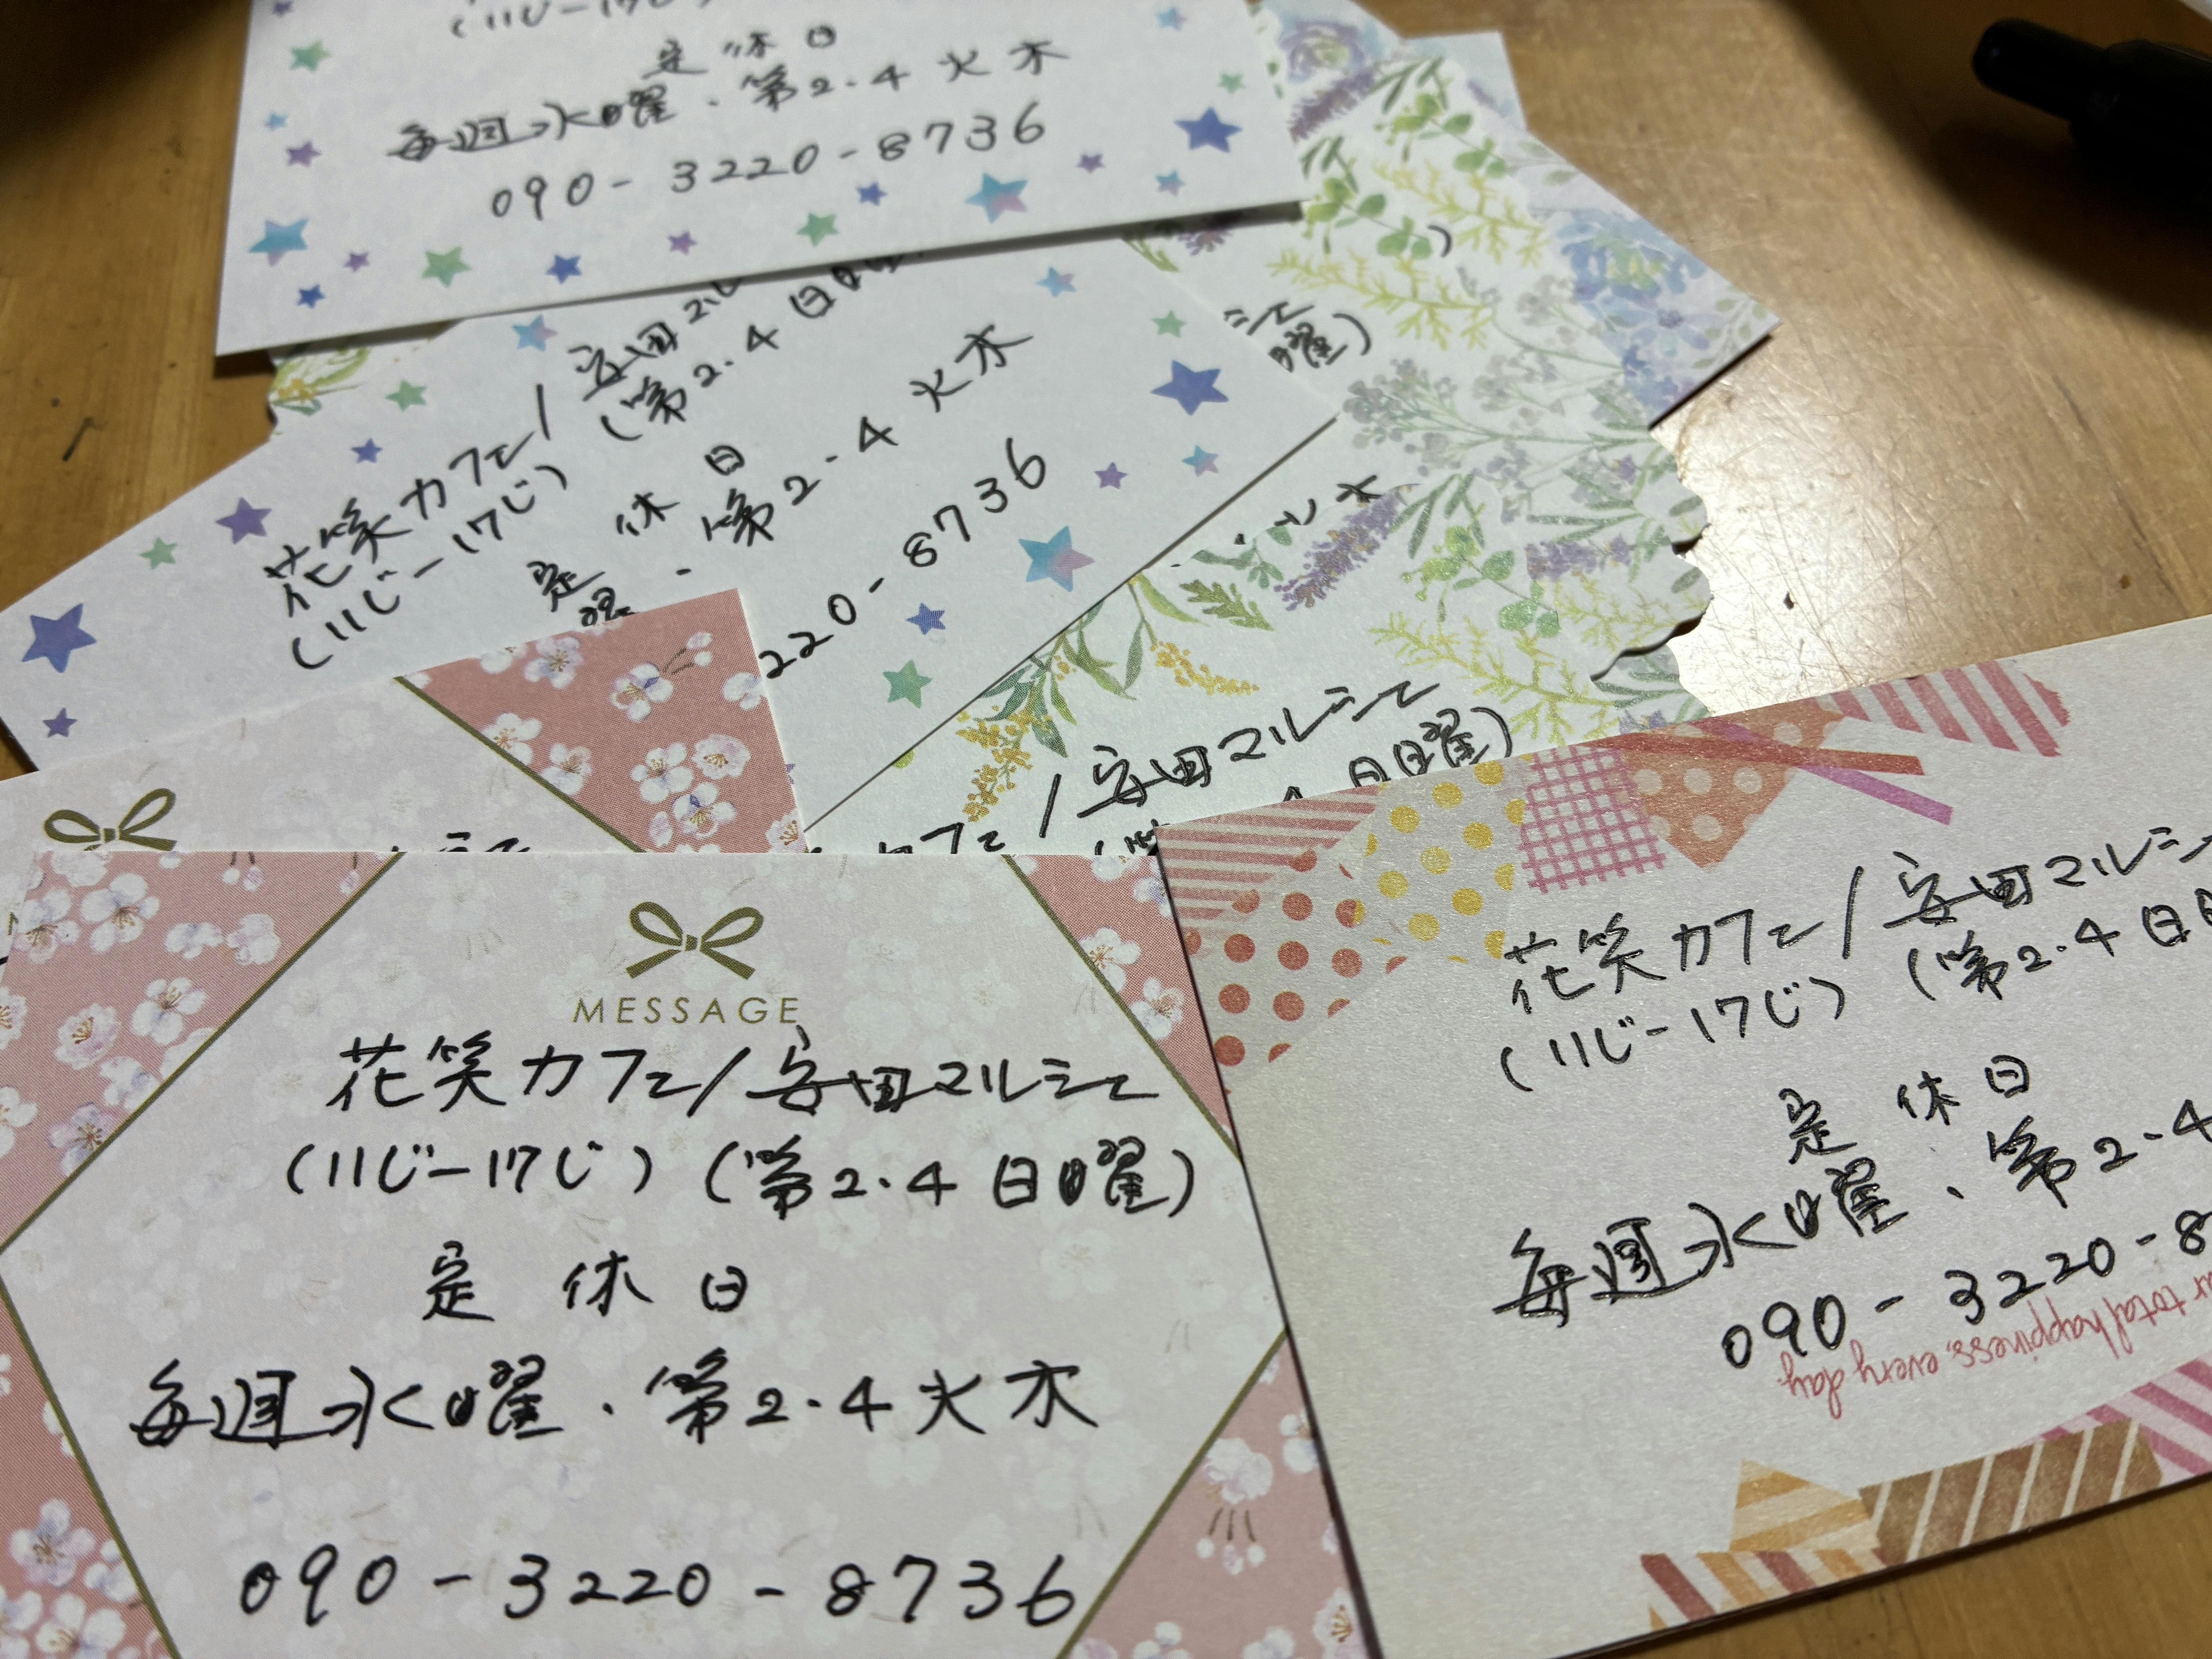 (11じ-17じ)
定休日
毎週水曜・第2・4火木
090-3220-8736
花笑カフェ/安田マル
(11じ-17じ) (第2・4日曜
定休日
曜・第2・4火木
220-8736
シェ
曜)
カフェ/安田マルシェ
4日曜)
MESSAGE
花笑カフェ/安田マルシェ
(11じ-17じ) (第2・4日曜)
定休日
毎週水曜・第2・4火木
090-3220-8736
花笑カフェ/安田マルシ
(11じ-17じ) (第2・4日
定休日
毎週水曜・第2・4
090-3220-8
total happiness, every day.